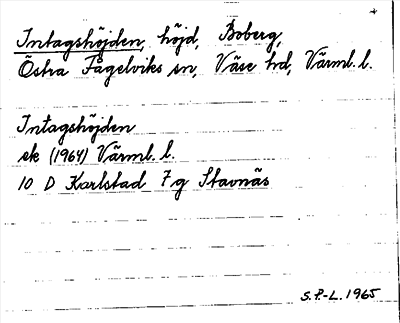 Intagshöjden, höjd, Boberg,
Östra Fågelviks sn, Väse hd, Värml. l.
Intagshöjden
ek (1964) Värml. l.
10 D Karlstad 7 g Stavnäs
S.P.-L. 1965